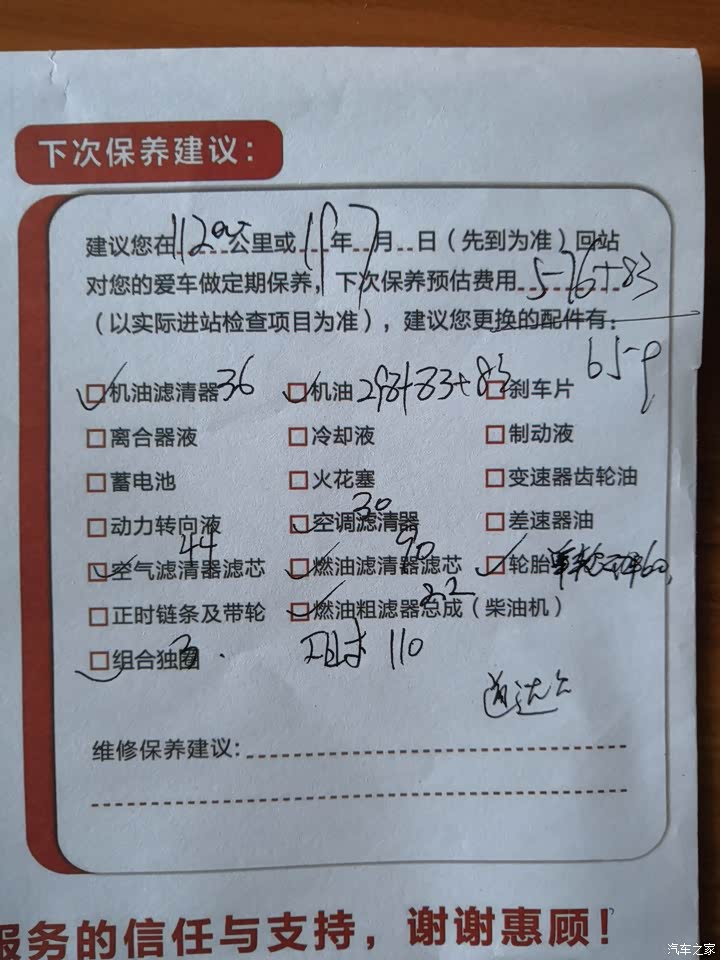 下次保养建议：
建议您在11200公里或19年7月 日（先到为准）回站
对您的爱车做定期保养，下次保养预估费用576+83
（以实际进站检查项目为准），建议您更换的配件有：
659
机油滤清器36 机油 298+83+83 刹车片
离合器液 冷却液 制动液
蓄电池 火花塞 变速器齿轮油
动力转向液 空调滤清器30 差速器油
空气滤清器滤芯44 燃油滤清器滤芯90 轮胎 60
正时链条及带轮 燃油粗滤器总成（柴油机）22
组合独圈3 工时 110
维修保养建议：
服务的信任与支持，谢谢惠顾！
汽车之家